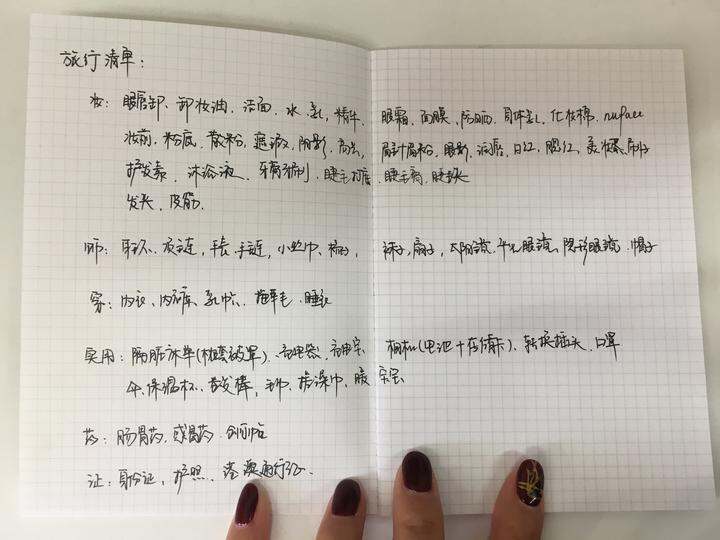 旅行清单：
妆：眼唇卸、卸妆油、洁面、水、乳、精华、眼霜、面膜、防晒、身体乳、化妆棉、nuface
妆前、粉底、散粉、遮瑕、阴影、高光、眉粉、眼影、润唇、口红、腮红、美妆蛋、刷子
护发素、沐浴液、牙膏牙刷、睫毛打底、睫毛膏、睫毛夹
发夹、皮筋、
饰：耳环、项链、手表、手链、小丝巾、袜子、扇子、太阳镜、平光眼镜、隐形眼镜、帽子
穿：内衣、内裤、乳帖、睡衣
实用：隔脏床单(枕套被罩)、充电器、充电宝、相机(电池+存储卡)、转换插头、口罩
伞、保温杯、卷发棒、毛巾、搓澡巾、暖宝宝
药：肠胃药、感冒药、创可帖
证：身份证、护照、港澳通行证、